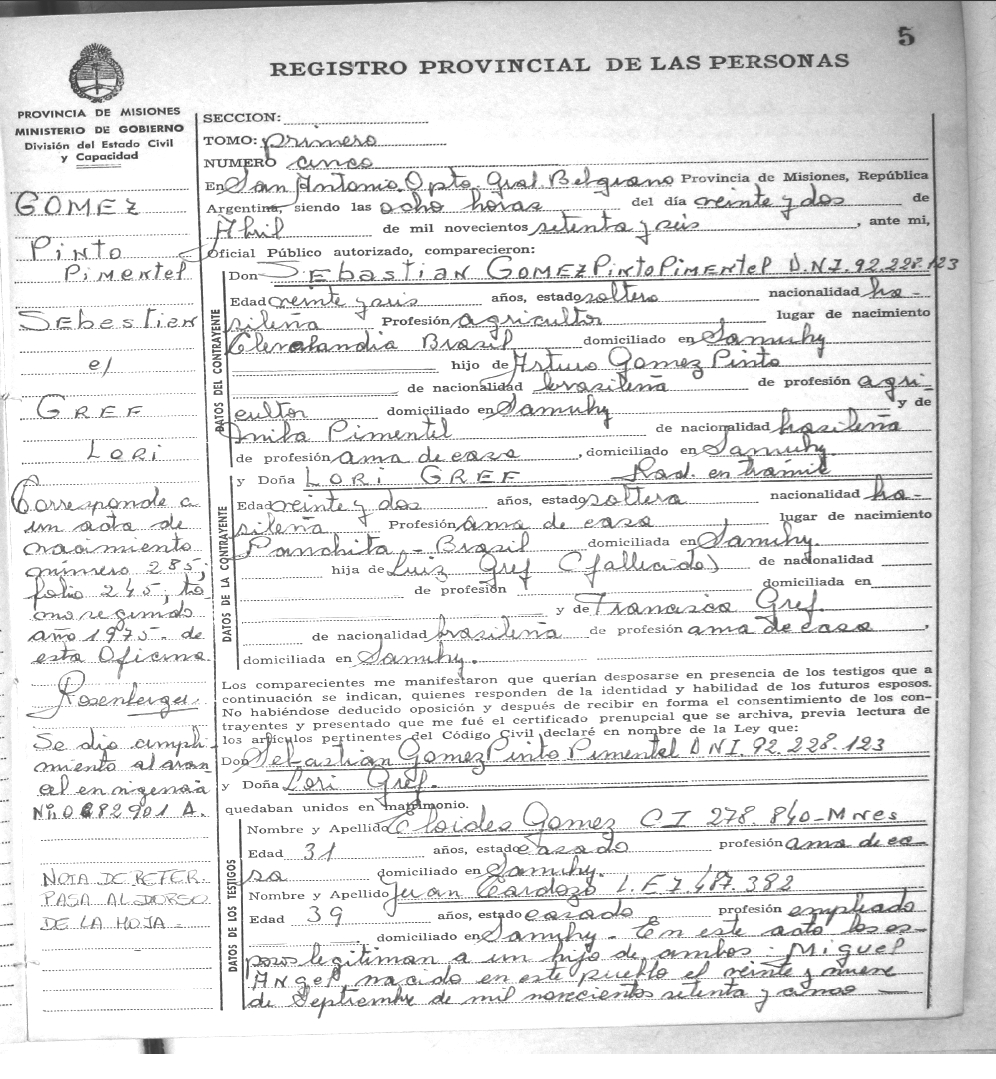 5
REGISTRO PROVINCIAL DE LAS PERSONAS
PROVINCIA DE MISIONES
MINISTERIO DE GOBIERNO
División del Estado Civil
y Capacidad
GOMEZ
Pinto
Pimentel
Sebestien
e/
GREF
LORI
Corresponde a
un acta de
nacimiento
número 285;
folio 245; to-
mo segundo
año 1975 - de
esta Oficina
Rosenberger
Se dio cumpli-
miento al aran
cel en vigencia
Nº 0682901 A.
NOTA DE REFER.
PASA AL DORSO
DE LA HOJA -
SECCION:
TOMO: primero
NUMERO cinco
En San Antonio Dpto. Gral. Belgrano Provincia de Misiones, República
Argentina, siendo las ocho horas del día veinte y dos de
Abril de mil novecientos setenta y seis, ante mi,
Oficial Público autorizado, comparecieron:
DATOS DEL CONTRAYENTE
Don Sebastian Gomez Pinto Pimentel D.N.I. 92.228.123
Edad veinte y seis años, estado soltero nacionalidad bra-
sileña Profesión agricultor lugar de nacimiento
Clevelandia Brasil domiciliado en Samuhy
hijo de Arturo Gomez Pinto
de nacionalidad brasileña de profesión agri-
cultor domiciliado en Samuhy y de
Anita Pimentel de nacionalidad brasileña
de profesión ama de casa, domiciliado en Samuhy.
DATOS DE LA CONTRAYENTE
y Doña LORI GREF Rad. en trámite
Edad veinte y dos años, estado soltera nacionalidad bra-
sileña Profesión ama de casa lugar de nacimiento
Ranchita - Brasil domiciliada en Samuhy.
hija de Luiz Gref (fallecido) de nacionalidad
de profesión domiciliada en
y de Francisca Gref.
de nacionalidad brasileña de profesión ama de casa,
domiciliada en Samuhy.
Los comparecientes me manifestaron que querían desposarse en presencia de los testigos que a
continuación se indican, quienes responden de la identidad y habilidad de los futuros esposos.
No habiéndose deducido oposición y después de recibir en forma el consentimiento de los con-
trayentes y presentado que me fué el certificado prenupcial que se archiva, previa lectura de
los artículos pertinentes del Código Civil, declaré en nombre de la Ley que:
Don Sebastian Gomez Pinto Pimentel D.N.I. 92.228.123
y Doña Lori Gref.
quedaban unidos en matrimonio.
DATOS DE LOS TESTIGOS
Nombre y Apellido Cloides Gomez CI 278.840 - Mnes
Edad 31 años, estado casado profesión ama de ca-
sa domiciliado en Samuhy.
Nombre y Apellido Juan Cardozo L.E 7.487.382
Edad 39 años, estado casado profesión empleado
domiciliado en Samuhy - En este acto los es-
posos legitiman a un hijo de ambos: Miguel
Angel, nacido en este pueblo el veinte y nueve
de Septiembre de mil novecientos setenta y cinco -